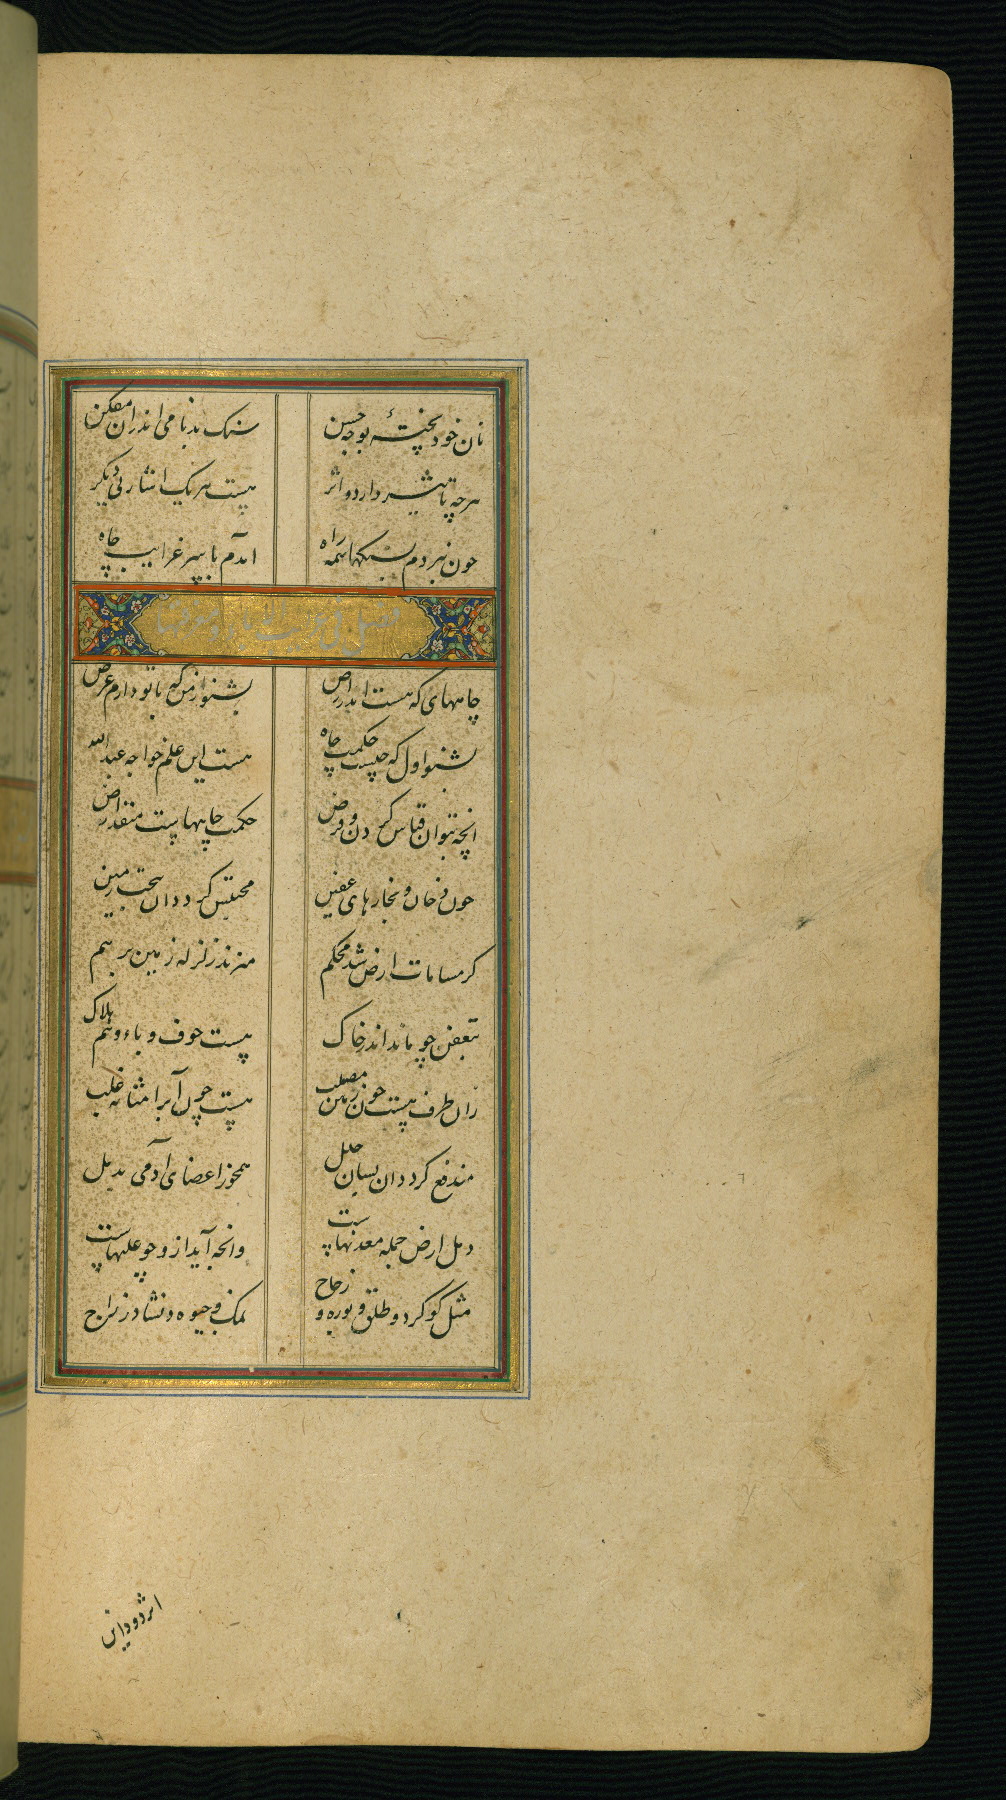 نان خود پختهٔ بوجه حسن سنک بدنامی اندران مفکن
هرچه تاثیر دارد و اثر نیست هریک اشارتی دیکر
چون نبردم بسنکها همه راه آمدم با سر غرایب چاه
فصل فی
چاههای که هست اندر ارض بشنو از من که باتو دارم عرض
بشنو اول که چیست حکمت چاه هست این علم خواجه عبدالله
انچه بتوان قیاس کردن و فرض حکمت چاههاست منقد ارض
چون دخان و بخارهای عفین محتبس کردد ان بتحت زمین
کر مسامات ارض شد محکم مزند زلزله زمین برهم
بتعفن چو ماند اندر خاک هست خوف وباء و هم هلاک
زان طرف هست چون زمین مصلب هست چون آبرا مثانه غلب
مندفع کردد ان بسان خلل همچو ز اعضای آدمی بدمل
دمل ارض جمله معدنهاست وانچه آید ازو چو علتهاست
مثل کوکرد و طلق و بوره و زجاج نمک و جیوه و نشادر زاج
اثر دود این